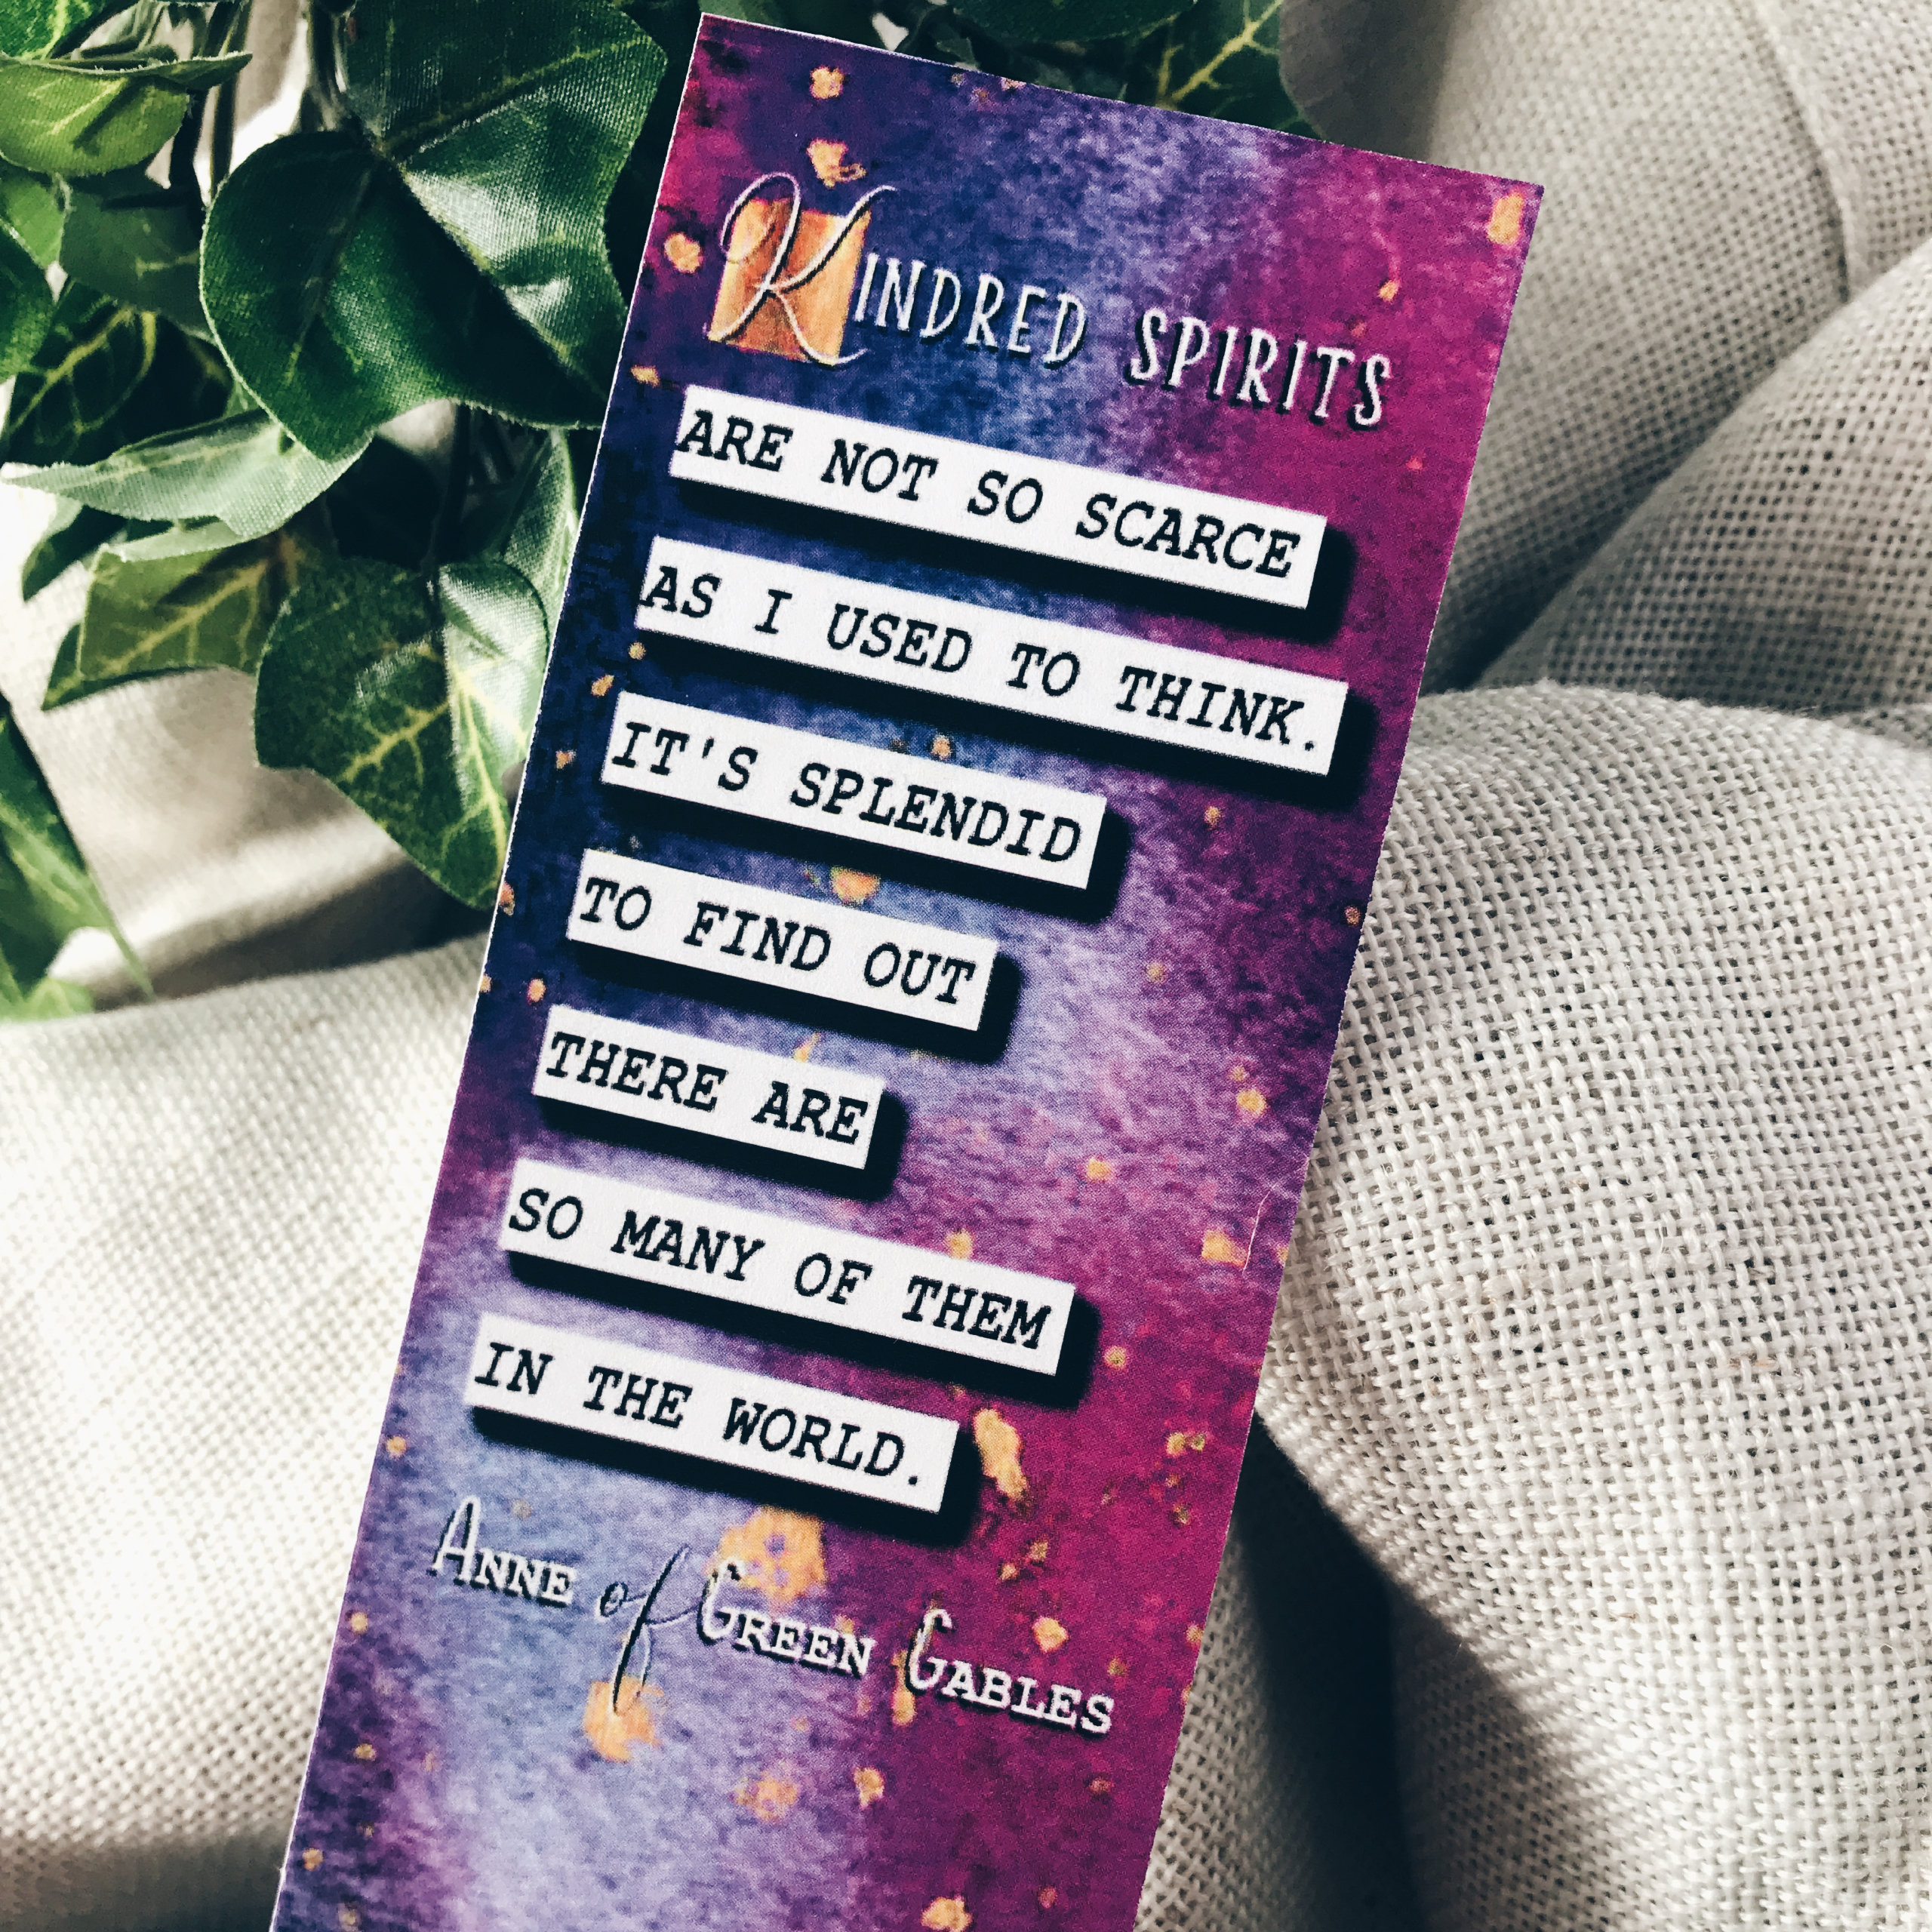 KINDRED SPIRITS
ARE NOT SO SCARCE
AS I USED TO THINK.
IT'S SPLENDID
TO FIND OUT
THERE ARE
SO MANY OF THEM
IN THE WORLD.
ANNE of GREEN GABLES